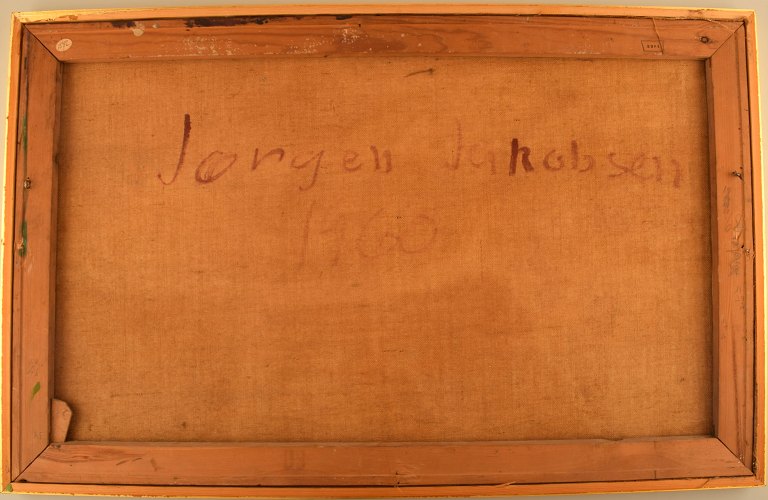 Jørgen Jakobsen
1960